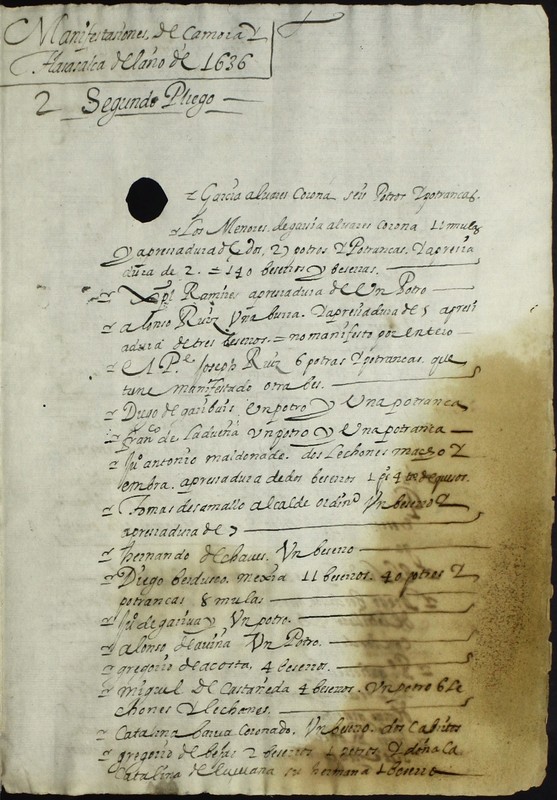 Manifestasiones de Camora Y
Tlasasalca del año de 1636
2 Segundo Pliego
Garçia alvares Corona seis Potros Y potrancas.
Los Menores de garçia alvares Corona 11 mulas
Y apresiadura de dos, 27 potros Y Potrancas. Y apresia
dura de 2. = 140 beserros y beserras.
Ramires apresiadura de Un Potro
alonso Ruiz Vna burra. Y apresiadura de 5 apresi
adura de tres beserros = no manifesto por entero
El P.e Joseph Ruiz 6 potros Y potrancas. que
tiene manifestado otra bes.
Diego de garibais, Un potro y Una potranca
fran.co de Ladueña Vn potro y Una potranca
Ju.o antonio maldonado. dos Lechones macho Y
embra. apresiadura de dos beserros 1 4 de quesos.
Tomas desamallo alcalde ordin.o Un beserro Y
apresiadura de
hernando de chaves. Un
Diego berdusco. mexia 11 beserros. 40 potros Y
potrancas 8 mulas
Ju.o de Un potro.
alonso de aviña Un Potro.
gregorio de acosta, 4 beserros.
miguel de Castañeda 4 beserros. Un potro 6 Le
chones Y lechones.
Catalina barva Coronado. Un beserro. dos
gregorio de 2 beserros 1 Y doña Ca
Catalina de su hermana 1 beserro